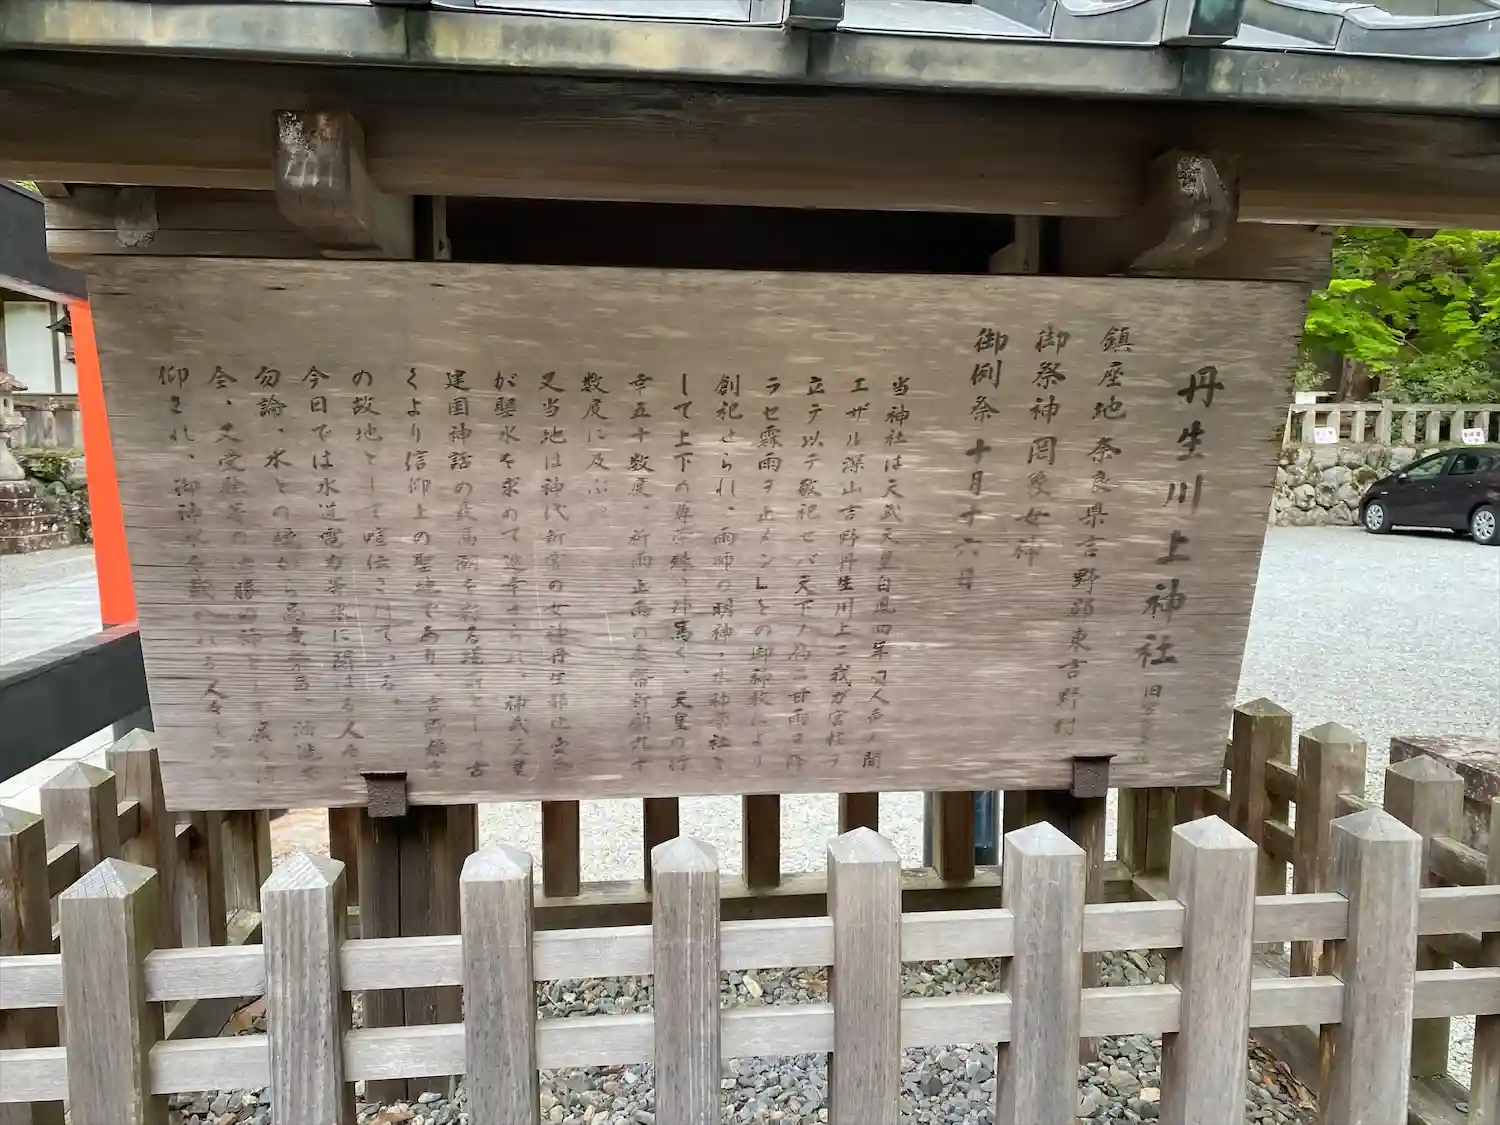 丹生川上神社
鎮座地 奈良県吉野郡東吉野村
御祭神 罔象女神
御例祭 十月十六日
当神社は天武天皇白鳳四年「人声ノ聞
エザル深山吉野丹生川上ニ我ガ宮柱ヲ
立テ以テ敬祀セバ天下ノ為ニ甘雨ヲ降
ラセ霖雨ヲ止メン」との御神教により
創祀せられ、雨師の明神・水神宗社と
して上下の尊崇殊に篤く、天皇の行
幸五十数度、祈雨止雨の奉幣祈願九十
数度に及ぶ。
又当地は神代 の女神丹生都比売命
が 水を求めて巡幸せられ、神武天皇
建国神話の厳瓮 として古
くより信仰上の聖地であり、吉野離宮
の故地として喧伝されている。
今日では水道電力等水に関はる人々は
勿論、水との から 、
全、又受験 の必勝 として広く
仰され、御神水を戴かれる人々